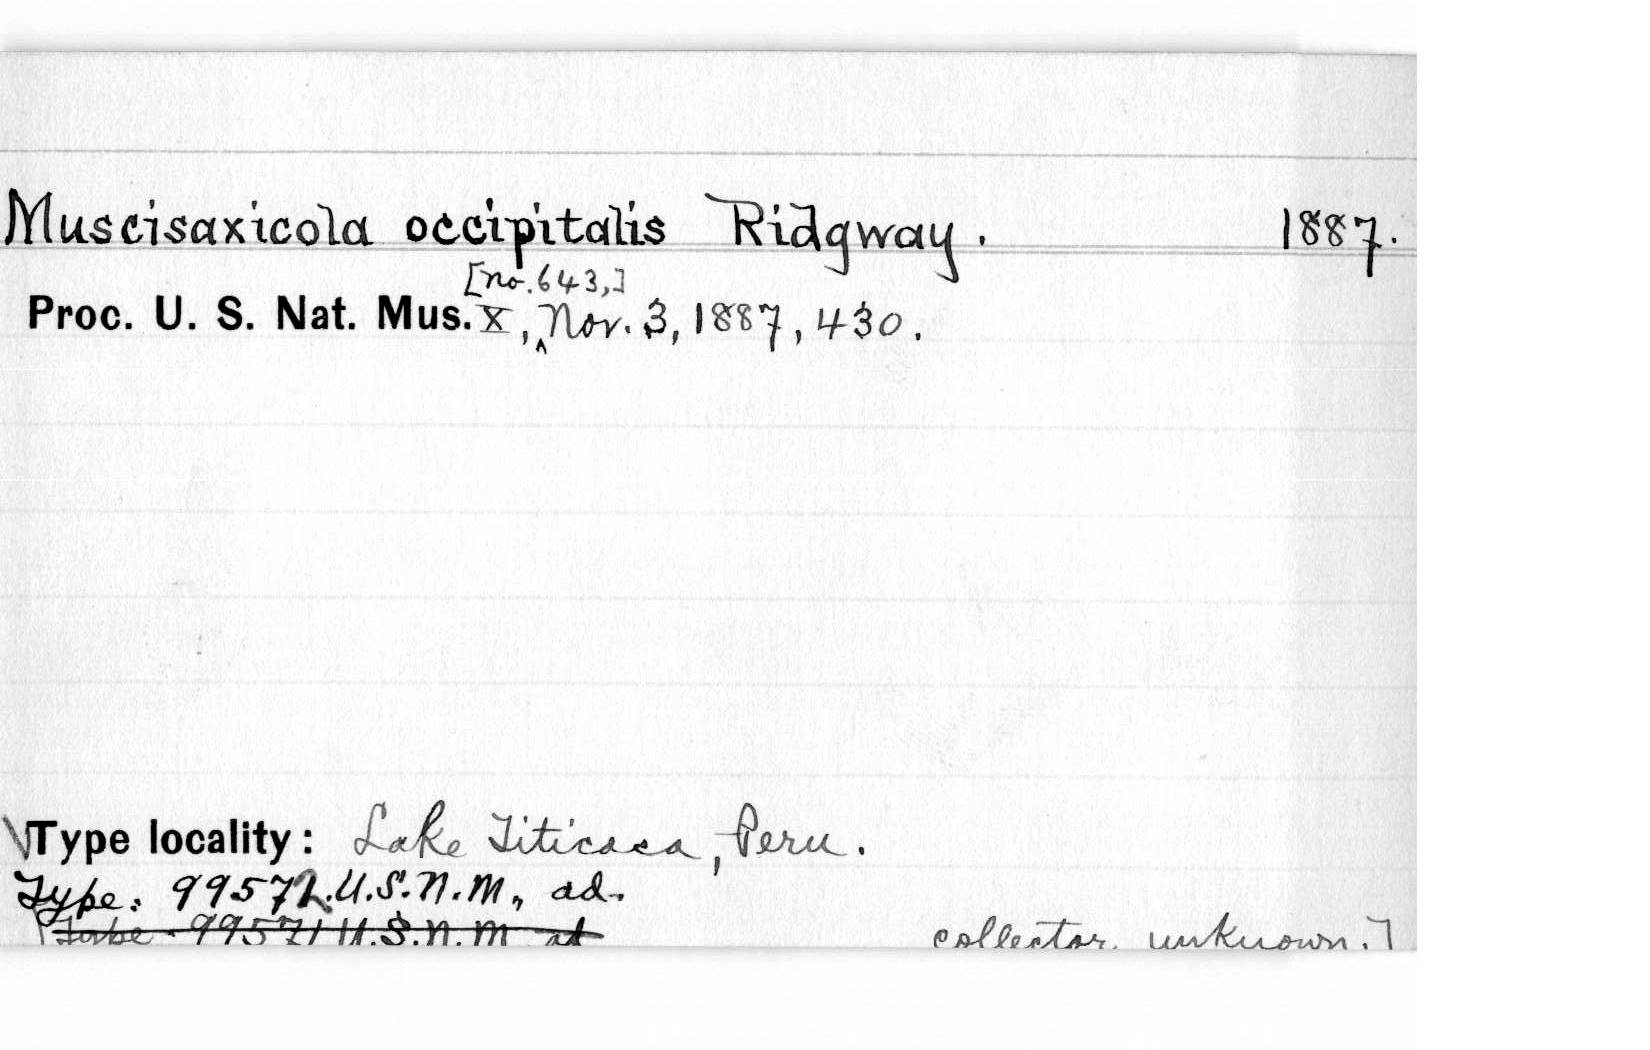 Muscisaxicola occipitalis Ridgway. 1887.
[no. 643,]
Proc. U. S. Nat. Mus. X, ‸ Nov. 3, 1887, 430.
Type locality: Lake Titicaca, Peru.
Type. 99572. U.S.N.M., ad.
Type. 99571 U.S.N.M ad collector unknown.]